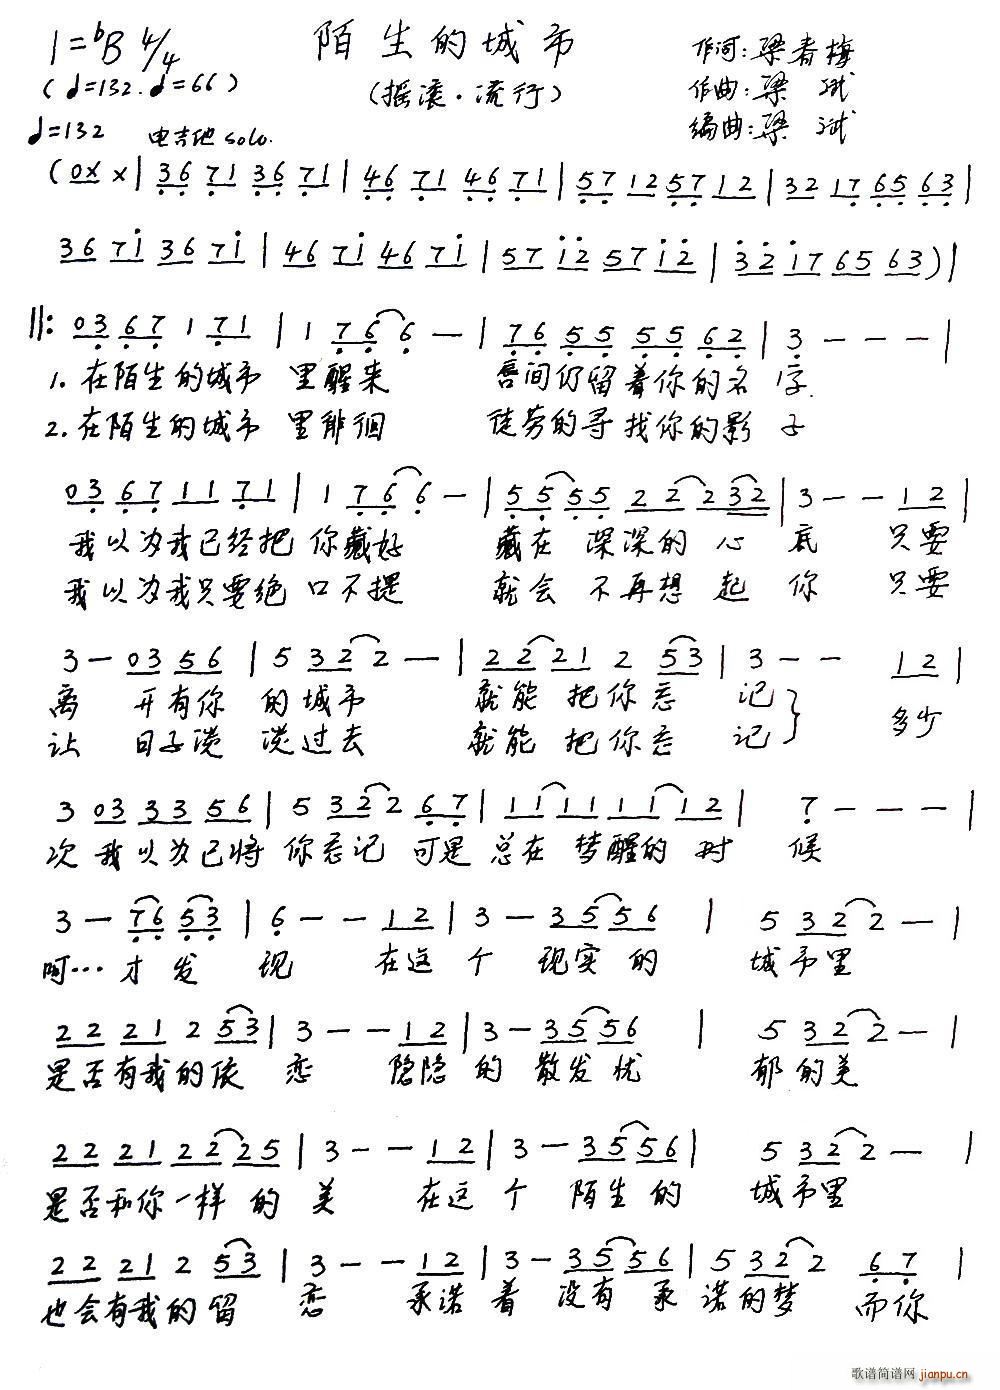 1=ᵇB 4/4
陌生的城市
作词:梁春梅
(♩=132.♩=66)
(摇滚·流行)
作曲:梁斌
♩=132 电吉他solo.
编曲:梁斌
(0x x | 36 71 36 71 | 46 71 46 71 | 57 12 57 12 | 32 17 65 63 |
36 71 36 71 | 46 71 46 71 | 57 12 57 12 | 32 17 65 63) |
‖: 03 67 1 71 | 1 76 6 — | 76 55 55 62 | 3 - - - |
1. 在陌生的城市 里醒来 唇间仍留着你的名 字.
2. 在陌生的城市 里徘徊 徒劳的寻找你的影 子
03 67 11 71 | 1 76 6 — | 55 55 22 232 | 3 - - 12 |
我以为我已经把 你藏好 藏在 深深的 心 底 只要
我以为我只要绝 口不提 就会 不再想 起 你 只要
3 — 03 56 | 5 32 2 — | 22 21 2 53 | 3 - - 12 |
离 开有你 的城市 就能 把你忘 记
让 日子淡 淡过去 就能 把你忘 记} 多少
3 03 33 56 | 5 32 2 67 | 11 11 11 12 | 7 - - - |
次 我以为已将 你忘记 可是 总在 梦醒的 时 候
3 — 76 53 | 6 - - 12 | 3 — 35 56 | 5 32 2 — |
啊… 才 发 现 在这 个 现实的 城市里
22 21 2 53 | 3 - - 12 | 3 — 35 56 | 5 32 2 — |
是否有我的依 恋 隐隐 的 散发忧 郁的美
22 21 22 25 | 3 - - 12 | 3 — 35 56 | 5 32 2 — |
是否和你一样 的 美 在这 个 陌生的 城市里
22 21 2 53 | 3 - - 12 | 3 — 35 56 | 5 32 2 67 |
也会有我的留 恋 承诺 着 没有 承 诺的梦 而你
歌谱简谱网 jianpu.cn